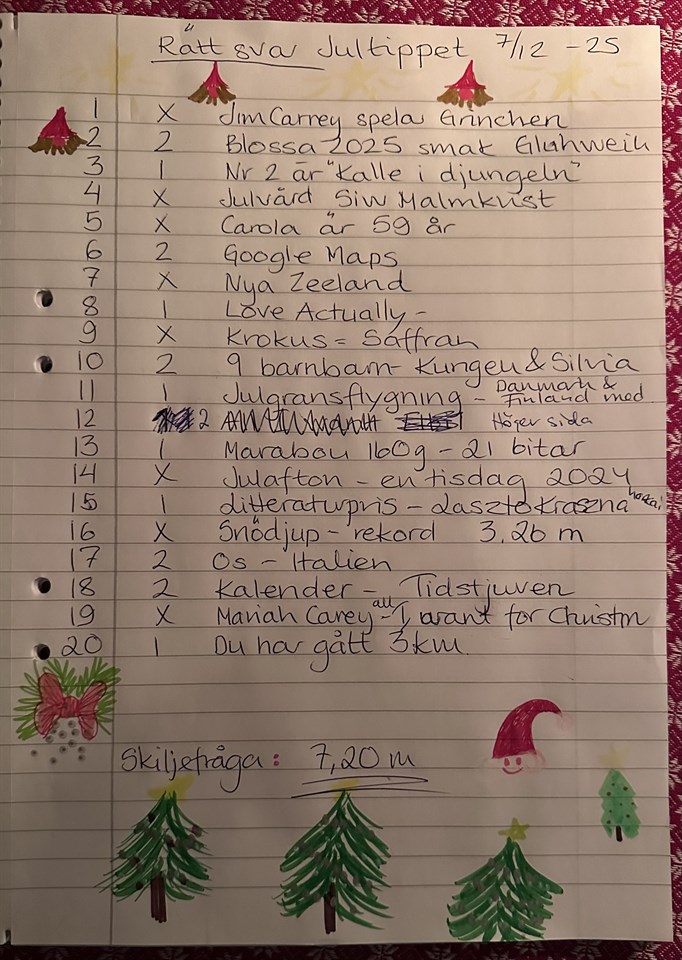 Rätt svar Jultippet 7/12 - 25
1 X Jim Carrey spela Grinchen
2 2 Blossa 2025 smak Glühwein
3 1 Nr 2 är "Kalle i djungeln"
4 X Julvärd Siw Malmkvist
5 X Carola är 59 år
6 2 Google Maps
7 X Nya Zeeland
8 1 Love Actually -
9 X Krokus = Saffran
10 2 9 barnbarn - Kungen & Silvia
11 1 Julgransflygning - Danmark & Finland med
12 2 Höger sida
13 1 Marabou 160g - 21 bitar
14 X Julafton - en tisdag 2024
15 1 Litteraturpris - Laszto Krasznahorkai
16 X Snödjup - rekord 3,26 m
17 2 Os - Italien
18 2 Kalender - Tidstjuven
19 X Mariah Carey - all I want for Christm
20 1 Du har gått 3 km.
Skiljefråga: 7,20 m